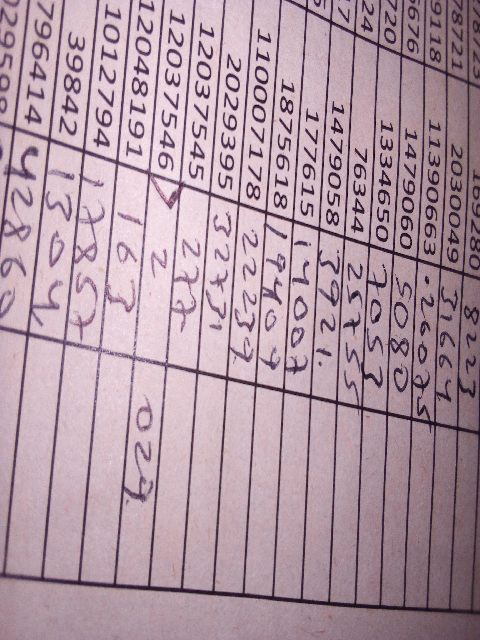 8223
2030049 31664
11390663 .26075
1479060 5080
1334650 7053
76344 25755
1479058 3921.
177615 14007
1875618 19409
110007178 22239
2029395 32731
12037545 277
12037546 2
12048191 163 029
1012794 17857
39842 1304
796414 42860